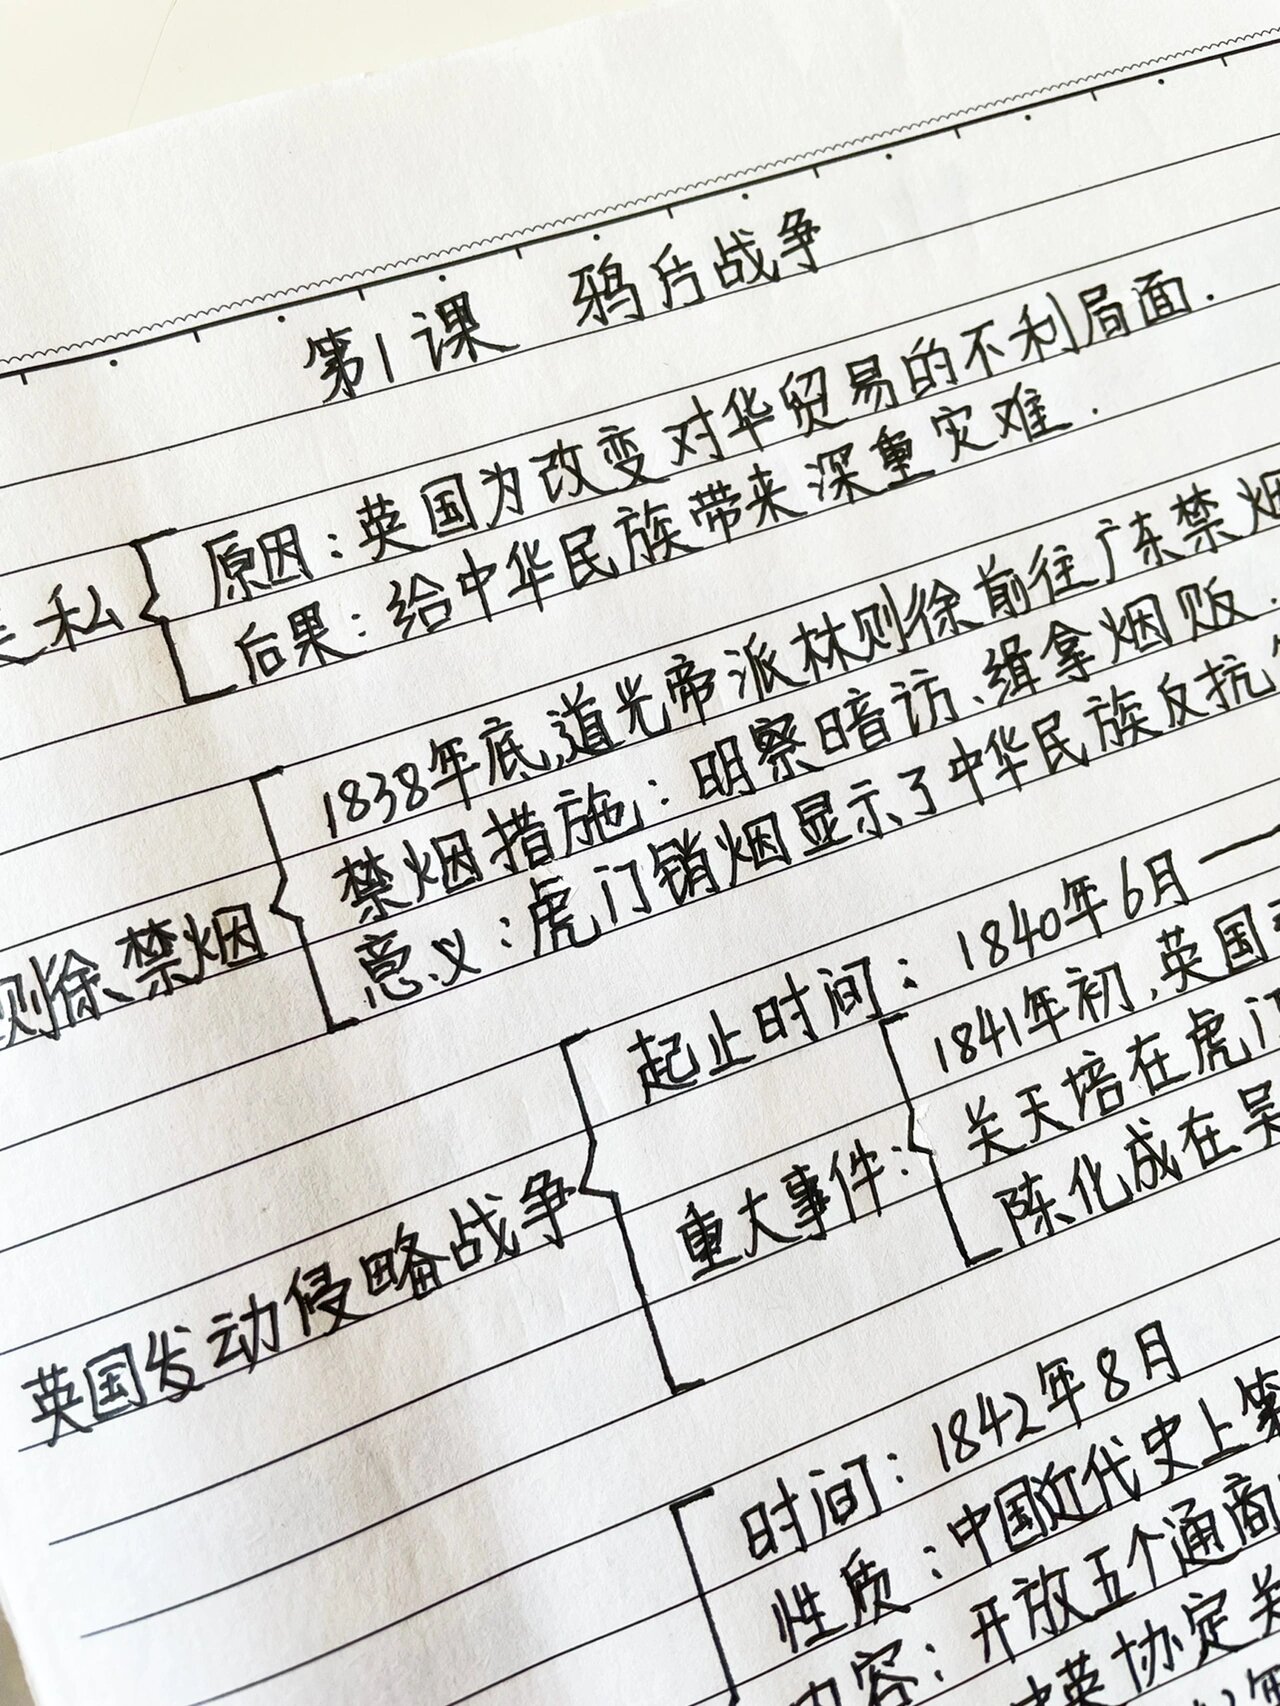 第1课 鸦片战争
原因：英国为改变对华贸易的不利局面.
走私
后果：给中华民族带来深重灾难.
1838年底,道光帝派林则徐前往广东禁烟
禁烟措施：明察暗访、缉拿烟贩.
则徐禁烟
意义：虎门销烟显示了中华民族反抗
起止时间：1840年6月一
1841年初,英国
英国发动侵略战争
重大事件：
关天培在虎门
陈化成在吴
时间：1842年8月
性质：中国近代史上第
内容：开放五个通商
英协定关